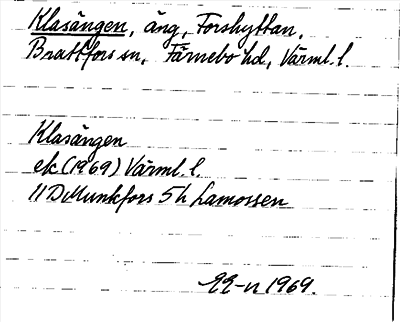 Klasängen, äng, Forshyttan,
Brattfors sn, Färnebo hd, Värml. l.
Klasängen
ek (1969) Värml. l.
11 D Munkfors 5 h Lamossen
1969.